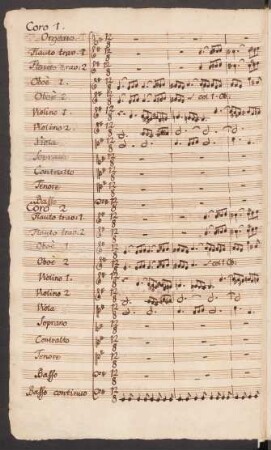 Coro 1.
Organo.
Flauto trav: 1
Flauto trav: 2
Oboe 1.
Oboe 2
col 1. Ob:
Violino 1.
Violino 2.
Viola
Soprano
Contralto
Tenore
Basso
Coro 2
Flauto trav: 1.
Flauto trav: 2
Oboe 1
Oboe 2
col 1. Ob:
Violino 1.
Violino 2
Viola
Soprano
Contralto
Tenore
Basso
Basso continuo